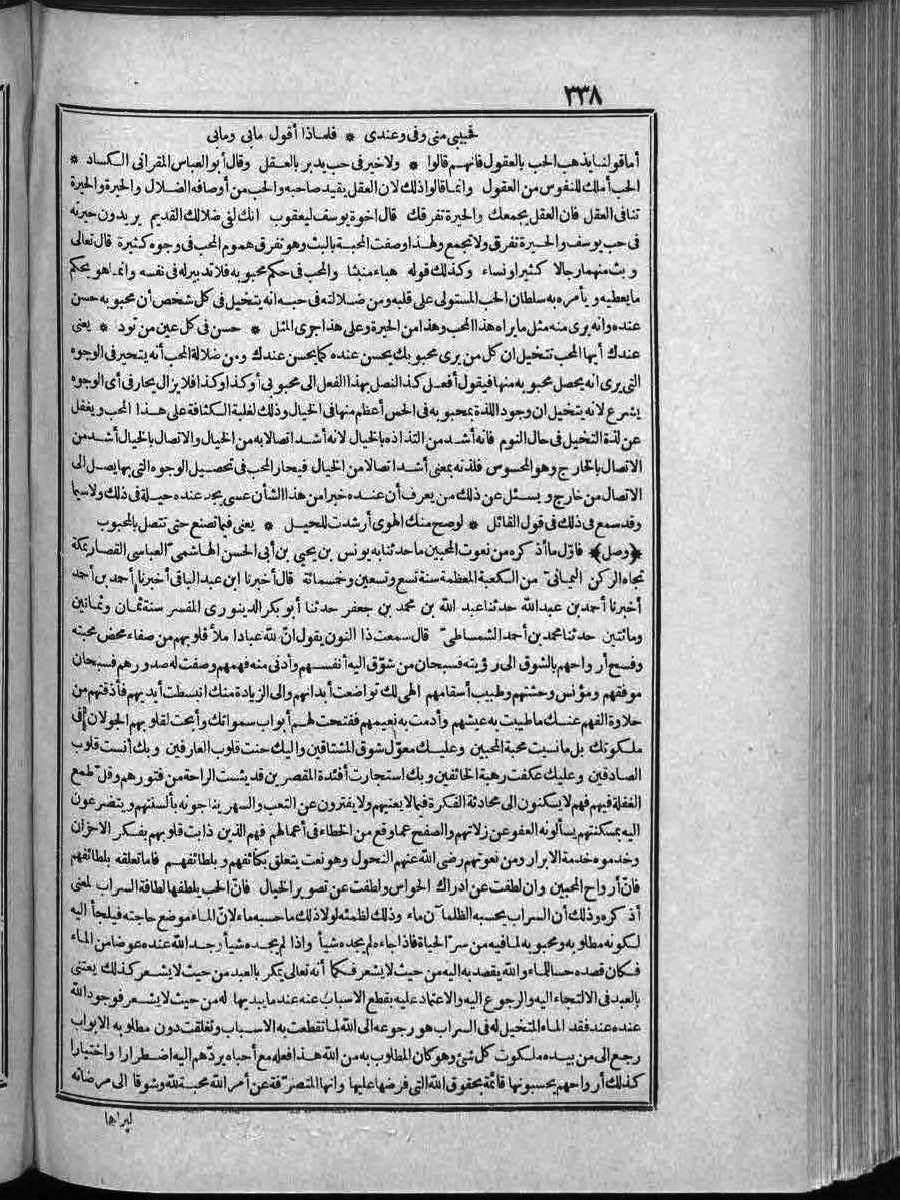 ٣٣٨
فحبيبي مني وفي وعندي * فلماذا أقول مابي ومابي
أما قولنا يذهب الحب بالعقول فانهم قالوا * ولا خير في حب يدبر بالعقل وقال أبو العباس المقراني الكساد *
الحب أملك للنفوس من العقول وانما قالوا ذلك لان العقل يقيد صاحبه والحب من أوصافه الضلال والحيرة والحيرة
تنافى العقل فان العقل يجمعك والحيرة تفرقك قال اخوة يوسف ليعقوب انك لفي ضلالك القديم يريدون حيرته
في حب يوسف والحيرة تفرق ولا تجمع ولهذا وصفت المحبة بالبث وهو تفرق هموم المحب في وجوه كثيرة قال تعالى
وبث منهما رجالا كثيرا ونساء وكذلك قوله هباء منبثا والمحب في حكم محبوبه فلا تدبير له في نفسه وانما هو بحكم
ما يعطيه ويأمره به سلطان الحب المستولى على قلبه ومن ضلالته في حبه انه يتخيل في كل شخص أن محبوبه حسن
عنده وانه يرى منه مثل ما يراه هذا المحب وهذا من الحيرة وعلى هذا جرى المثل * حسن في كل عين من تود * يعني
عندك أيها المحب تتخيل ان كل من يرى محبوبك يحسن عنده كما يحسن عندك ومن ضلالة المحب أنه يتحير في الوجوه
التي يرى انه يحصل محبوبه منها فيقول أفعل كذا لنصل بهذا الفعل الى محبوبي أو كذا وكذا فلا يزال يحار في أى الوجوه
يشرع لانه يتخيل ان وجود اللذة بمحبوبه في الحس أعظم منها في الخيال وذلك لغلبة الكثافة على هذا المحب ويغفل
عن لذة التخيل في حال النوم فانه أشد من التذاذه بالخيال لانه أشد اتصالا به من الخيال والاتصال بالخيال أشد من
الاتصال بالخارج وهو المحسوس فلذته بمعنى أشد اتصالا من الخيال فيحار المحب في تحصيل الوجوه التي بها يصل الى
الاتصال من خارج ويسئل عن ذلك من يعرف أن عنده خبرا من هذا الشأن عسى يجد عنده حيلة في ذلك ولاسيما
وقد سمع في ذلك في قول القائل * لو صح منك الهوى أرشدت للحيل * يعني فيما تصنع حتى تتصل بالمحبوب
﴿وصل﴾ فأول ما أذكره من نعوت المحبين ما حدثنا به يونس بن يحيى بن أبي الحسن الهاشمي العباسي القصار بمكة
تجاه الركن اليماني من الكعبة المعظمة سنة تسع وتسعين وخمسمائة قال أخبرنا ابن عبد الباقي أخبرنا أحمد بن أحمد
أخبرنا أحمد بن عبد الله حدثنا عبد الله بن محمد بن جعفر حدثنا أبو بكر الدينوري المفسر سنة ثمان وثمانين
ومائتين حدثنا محمد بن أحمد الشمشاطي قال سمعت ذا النون يقول ان لله عبادا ملأ قلوبهم من صفاء محض محبته
وفسح أرواحهم بالشوق الى رؤيته فسبحان من شوق اليه أنفسهم وأدنى منه فهمهم وصفت له صدورهم فسبحان
موفقهم ومؤنس وحشتهم وطبيب أسقامهم الهي لك تواضعت أبدانهم والى الزيادة منك انبسطت أيديهم فأذقتهم من
حلاوة الفهم عنك ما طيبت به عيشهم وأدمت به نعيمهم ففتحت لهم أبواب سمواتك وأبحت لقلوبهم الجولان في
ملكوتك بل مانسيت محبة المحبين وعليك معول شوق المشتاقين واليك حنت قلوب العارفين وبك أنست قلوب
الصادقين وعليك عكفت رهبة الخائفين وبك استجارت أفئدة المقصرين قد يئست الراحة من فتورهم وقل طمع
الغفلة فيهم فهم لا يسكنون الى محادثة الفكرة فيما لا يعنيهم ولا يفترون عن التعب والسهر يناجونه بألسنتهم ويتضرعون
اليه بمسكنتهم يسألونه العفو عن زلاتهم والصفح عما وقع من الخطاء في أعمالهم فهم الذين ذابت قلوبهم بفكر الاحزان
وخدموه خدمة الابرار ومن نعوتهم رضى الله عنهم النحول وهو نعت يتعلق بكثائفهم وبلطائفهم فاما تعلقه بلطائفهم
فان أرواح المحبين وان لطفت عن ادراك الحواس ولطفت عن تصوير الخيال فان الحب يلطفها لطافة السراب لمعنى
أذكره وذلك أن السراب يحسبه الظمآن ماء وذلك لظمئه لولا ذلك ما حسبه ماء لان الماء موضع حاجته فيلجأ اليه
لكونه مطلوبه ومحبوبه لما فيه من سر الحياة فاذا جاءه لم يجده شيأ واذا لم يجده شيأ وجد الله عنده عوضا من الماء
فكان قصده حسا للماء والله يقصد به اليه من حيث لا يشعر فكما أنه تعالى يمكر بالعبد من حيث لا يشعر كذلك يعتنى
بالعبد في الالتجاء اليه والرجوع اليه والاعتماد عليه بقطع الاسباب عنه عند ما يبديها له من حيث لا يشعر فوجود الله
عنده عند فقد الماء المتخيل له في السراب هو رجوعه الى الله لما تقطعت به الاسباب وتغلقت دون مطلوبه الابواب
رجع الى من بيده ملكوت كل شئ وهو كان المطلوب به من الله هذا فعله مع أحبابه يردهم اليه اضطرارا واختيارا
كذلك أرواحهم يحسبونها قائمة بحقوق الله التي فرضها عليها وانها المتصرفة عن أمر الله محبة لله وشوقا الى مرضاته
ليراها